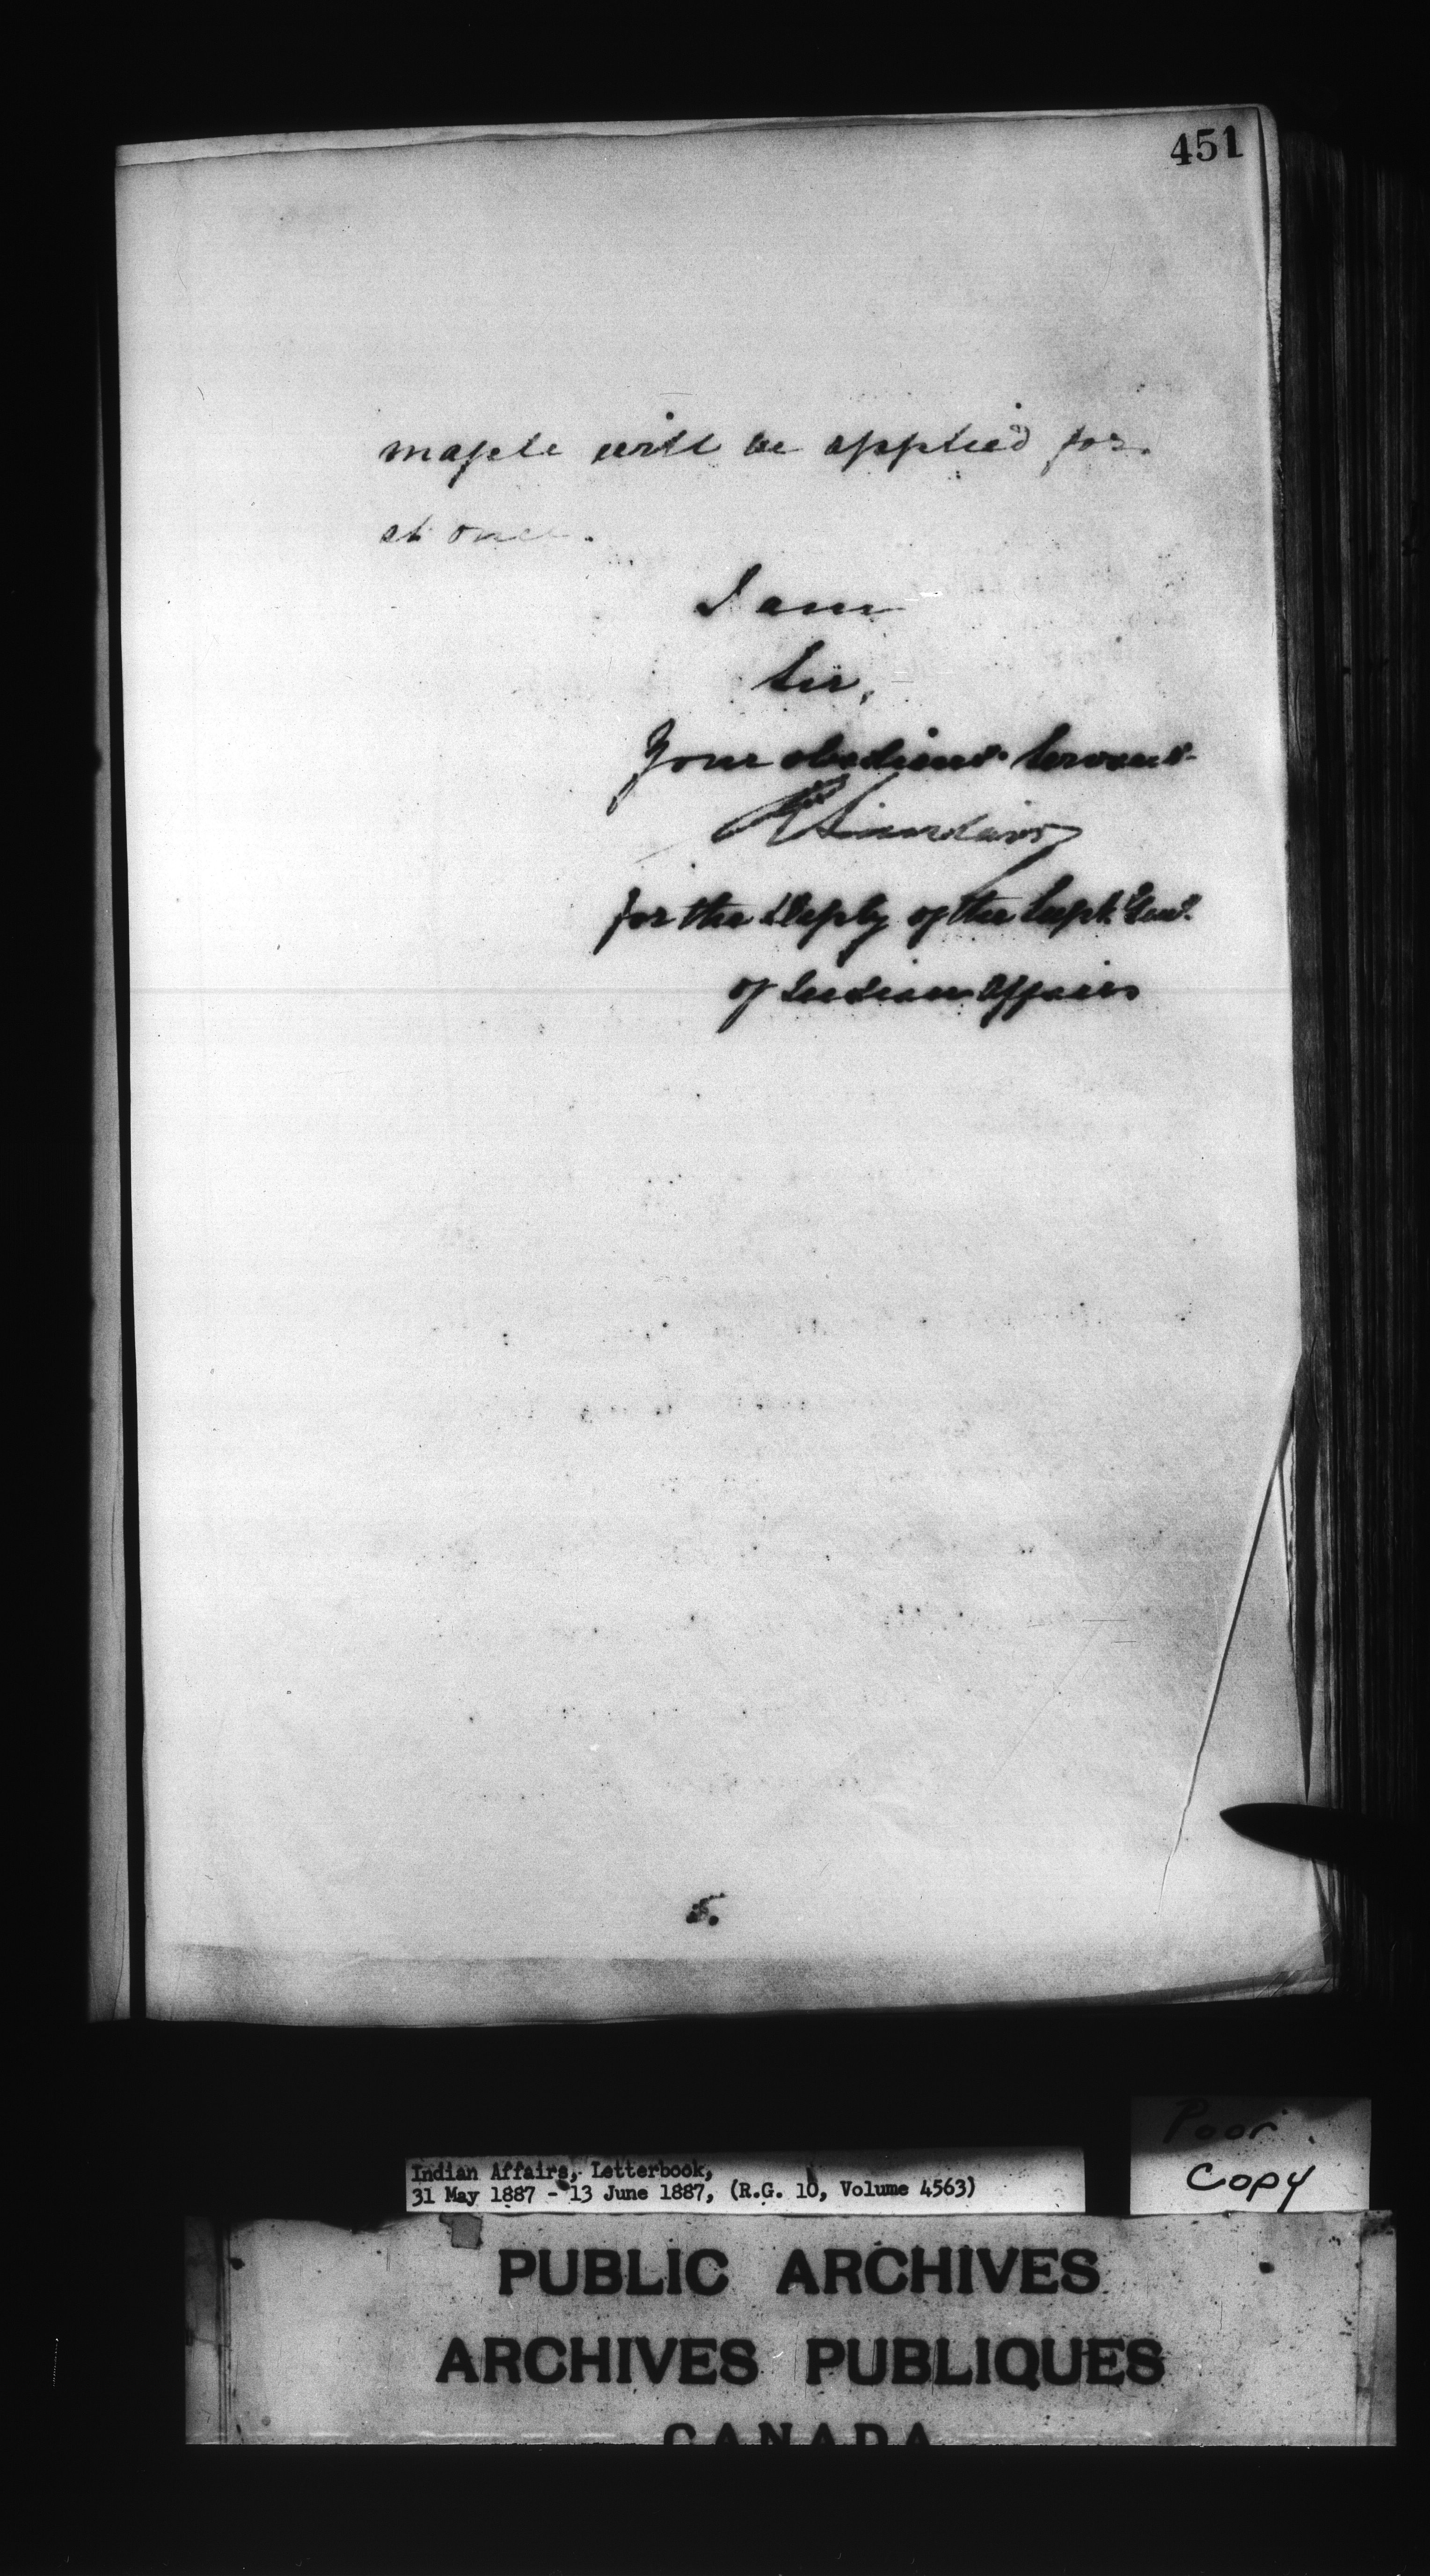 451
maple will be applied for
at once.
I am
Sir,
Your obedient Servant
R Sinclair
for the Deputy of the Supt. Genl.
of Indian Affairs
Poor
Copy
Indian Affairs, Letterbook,
31 May 1887 - 13 June 1887, (R.G. 10, Volume 4563)
PUBLIC ARCHIVES
ARCHIVES PUBLIQUES
CANADA